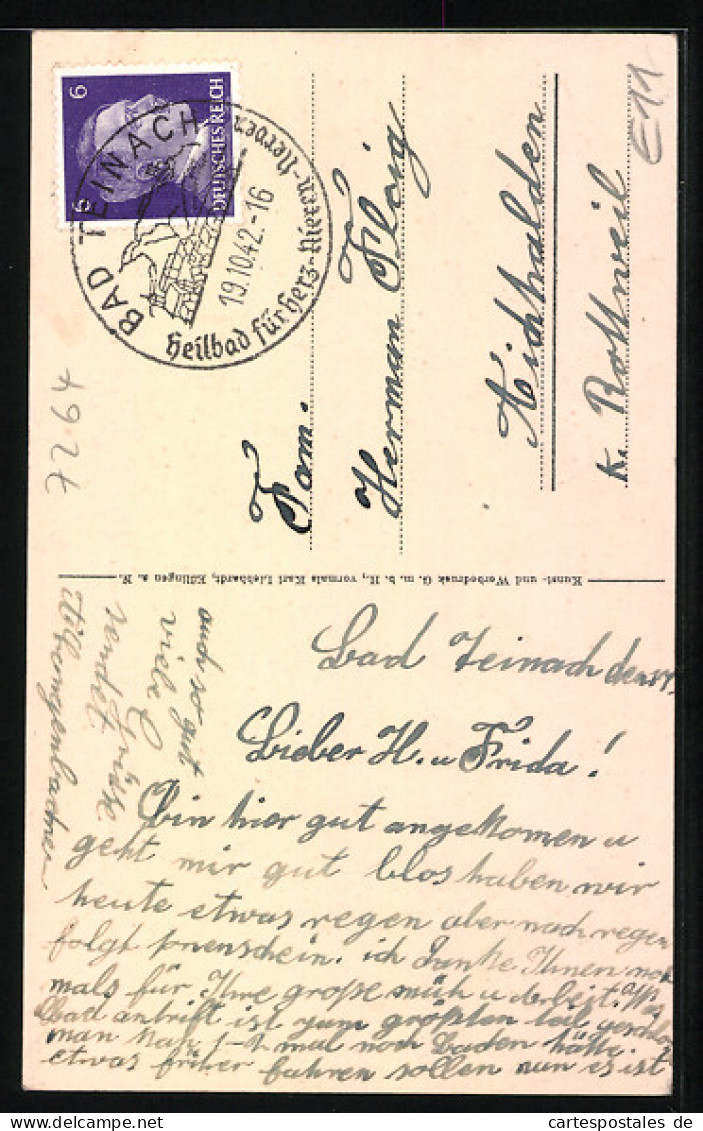 6
6
DEUTSCHES REICH
BAD TEINACH
19.10.42.-16
Heilbad für Herz-Nieren-Nerven
E11
Fam.
Herman Floig
Aichhalden
k. Rottweil
Kunst- und Werbedruck G. m. b. H., vormals Karl Liebhardt, Eßlingen a. N.
Bad Teinach den
Lieber H. u Frida!
Bin hier gut angekomen u
geht mir gut blos haben wir
heute etwas regen aber nach regen
folgt sonenschein. ich Danke Ihnen noch
mals für Ihre große müh u Arbeit.
bad antrift ist zum größten teil
man mal noch baden
etwas früher fahren sollen nun es ist
auch so gut
viele Grüße
sendet
cartespostales de - cartespostales.de